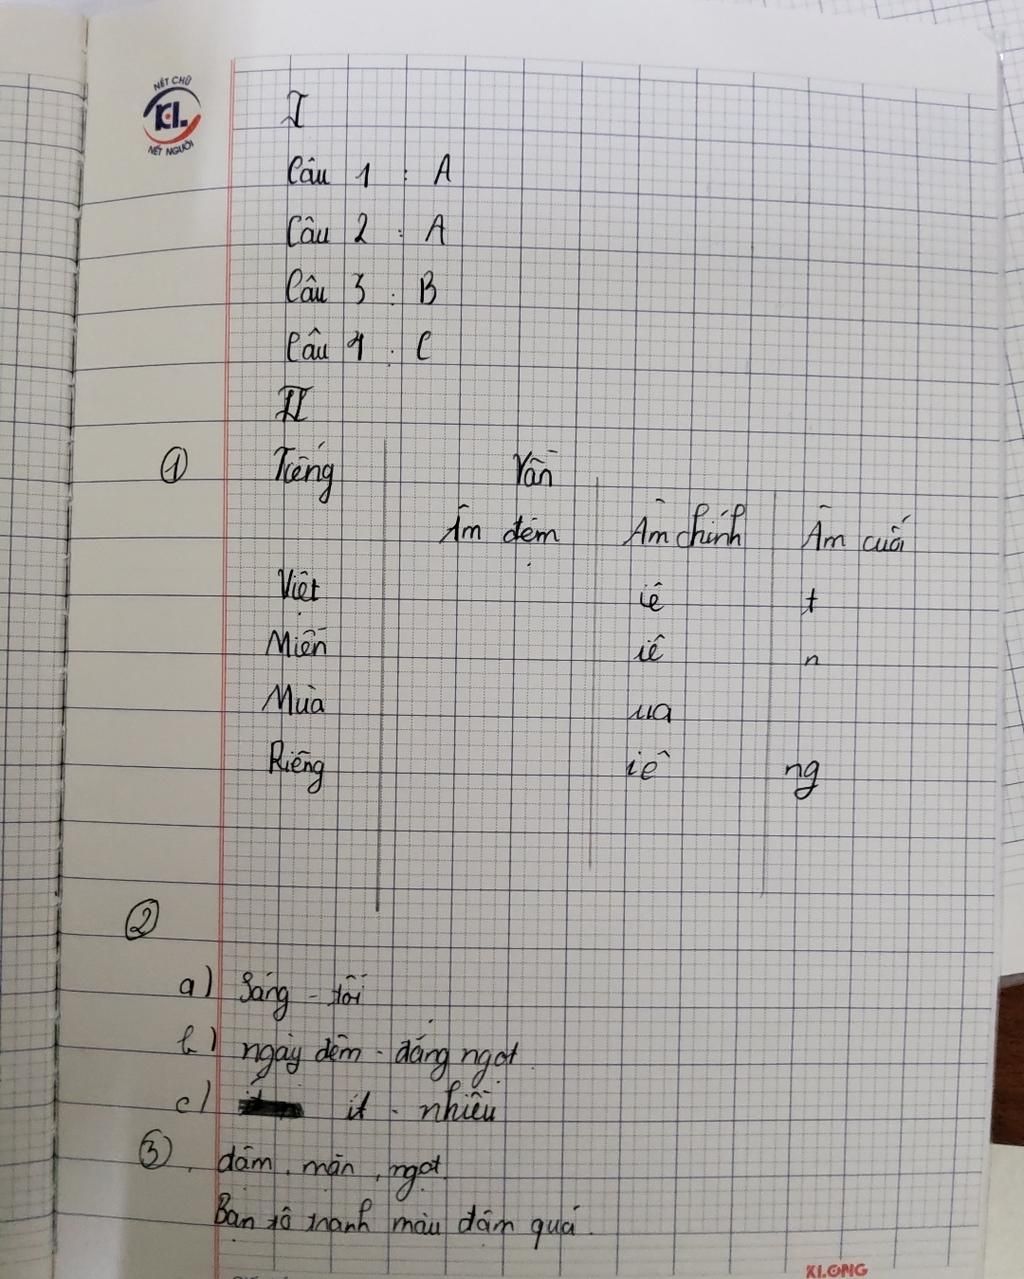 NÉT CHỮ
KL
NÉT NGƯỜI
I
Câu 1 : A
Câu 2 : A
Câu 3 : B
Câu 4 : C
II
① Tiếng Vần
Âm đệm Âm chính Âm cuối
Việt iê t
Miền iê n
Mùa ua
Riêng iê ng
②
a) Sáng - tối
b) ngày đêm - đắng ngọt
c) ít - nhiều
③ đậm, mặn, ngọt
Bạn tô tranh màu đậm quá.
KLONG